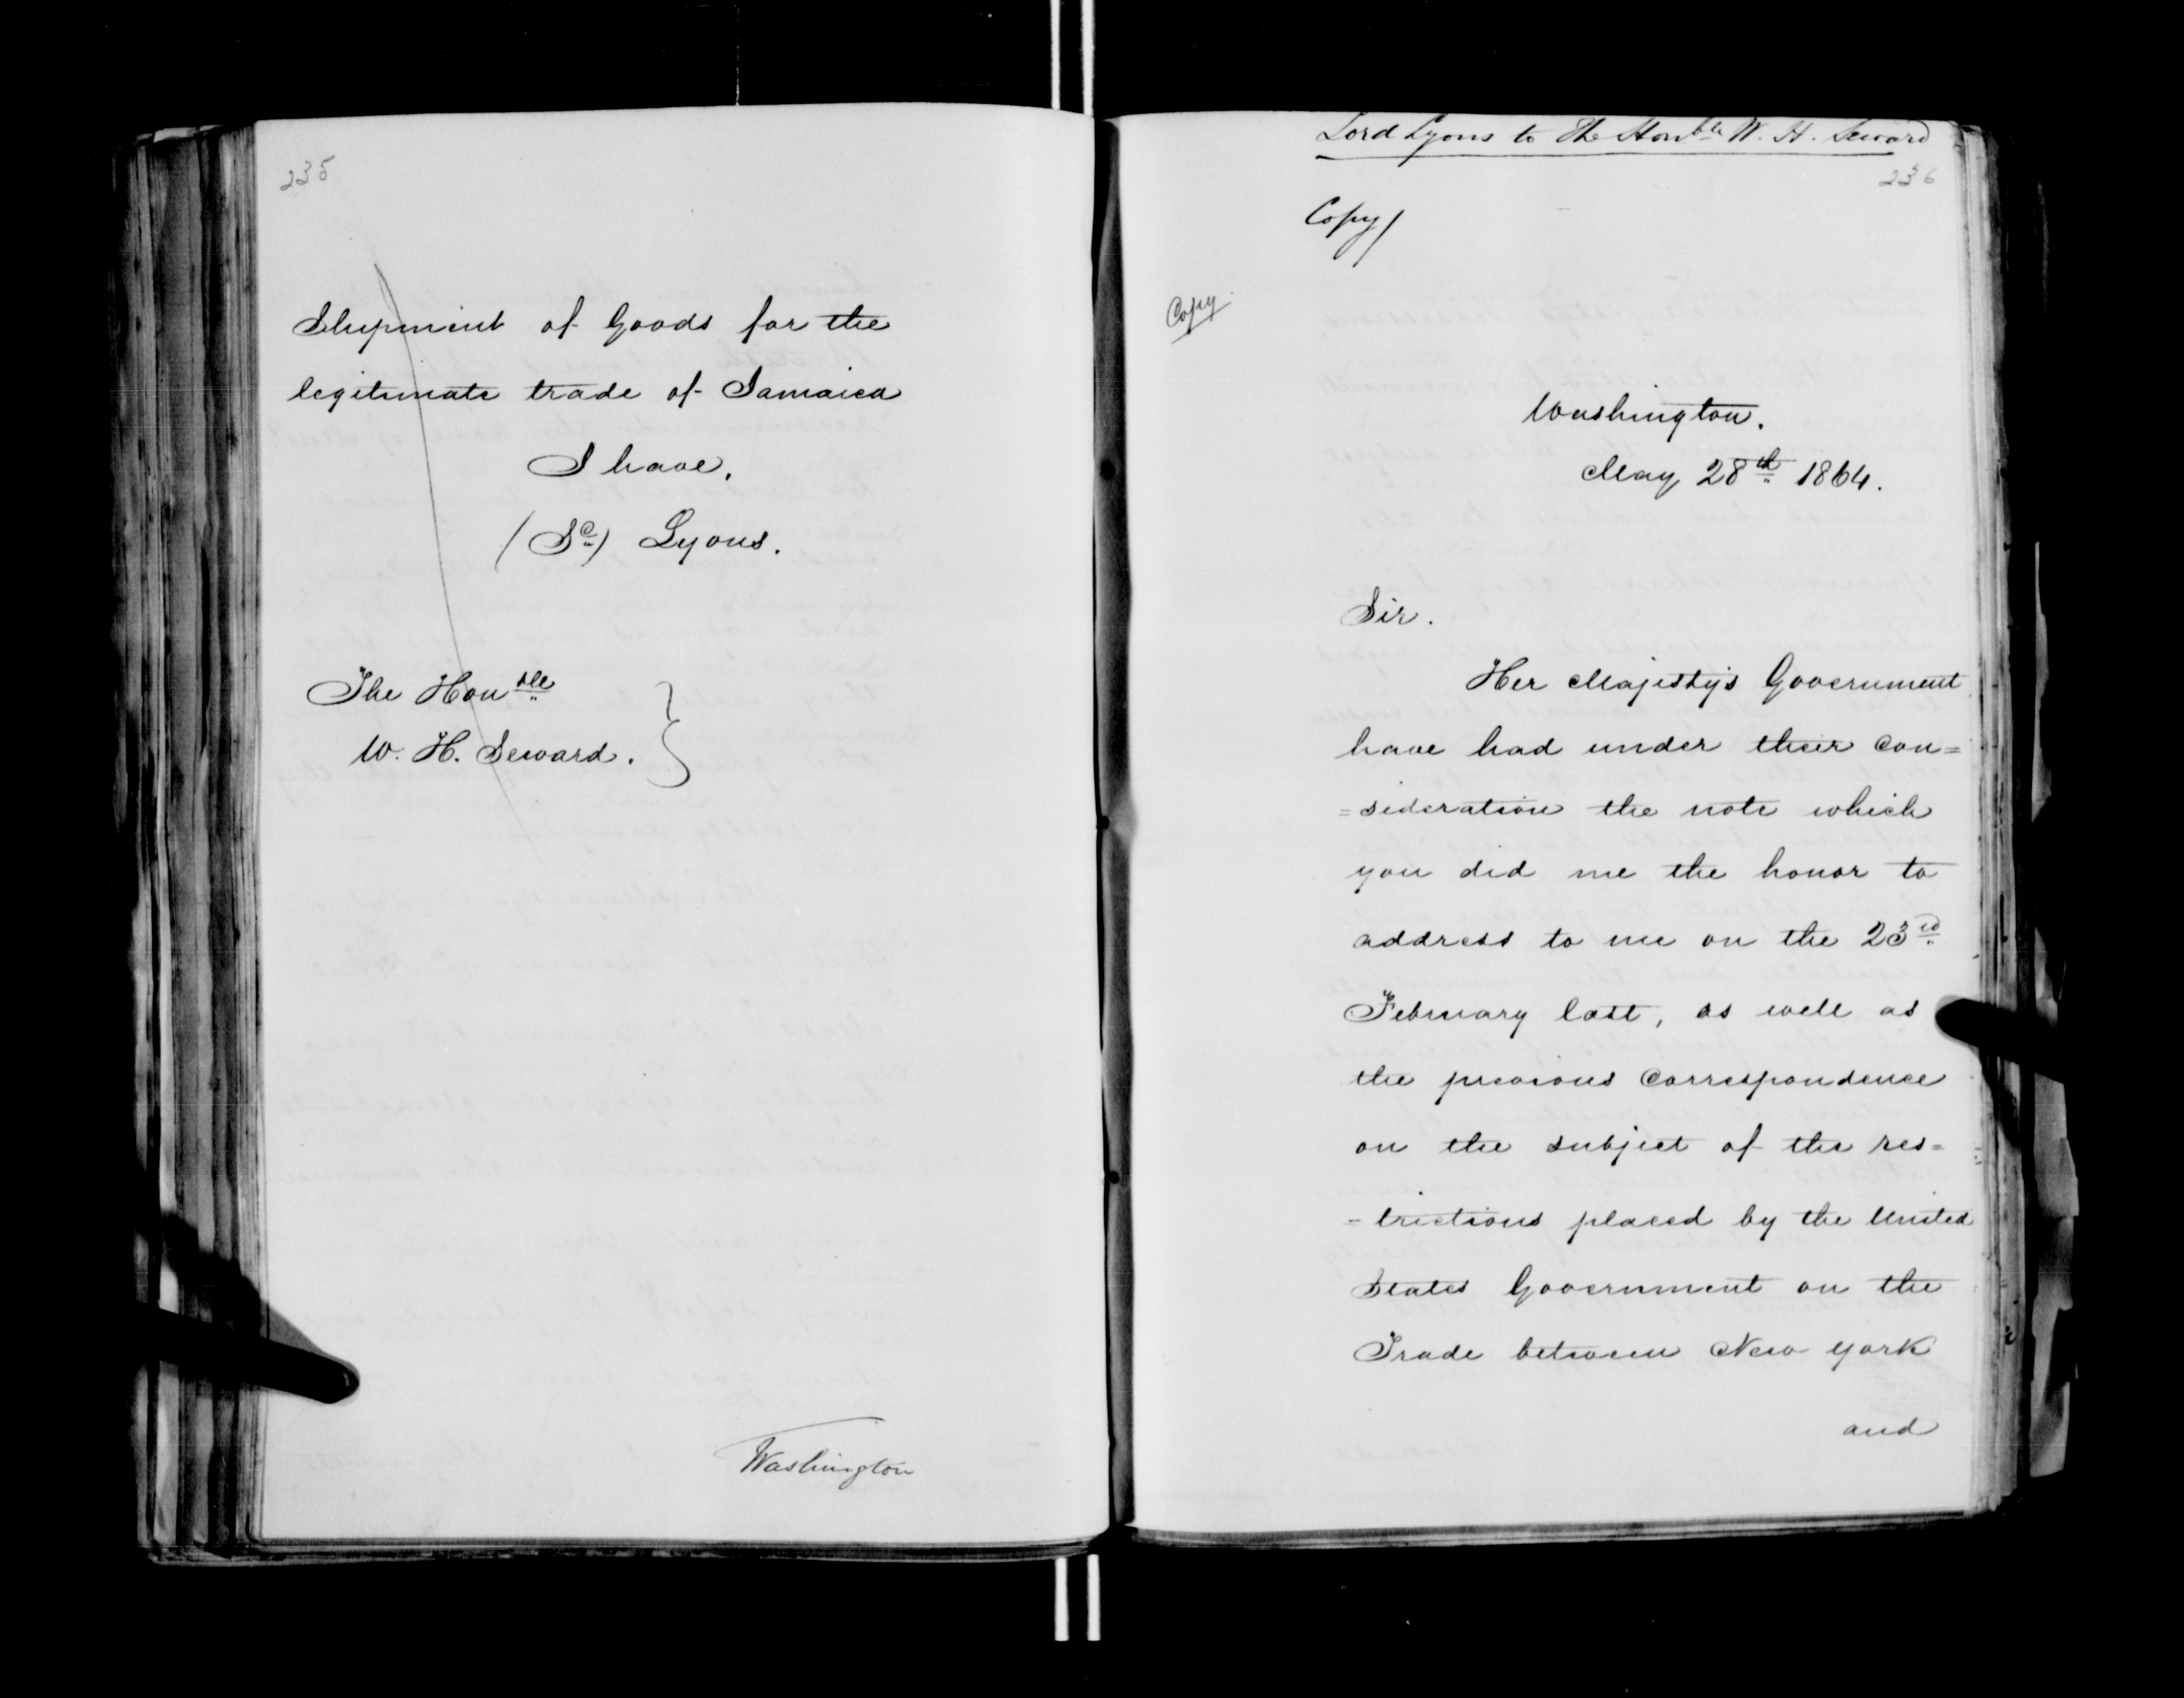 235
Shipment of Goods for the
legitimate trade of Jamaica
I have,
(Sd.) Lyons.
The Honble
W. H. Seward.
Washington
Lord Lyons to The Honble W. H. Seward
236
Copy/
Copy
Washington.
May 28th 1864.
Sir.
Her Majesty's Government
have had under their con=
=sideration the note which
you did me the honor to
address to me on the 23rd
February last, as well as
the previous Correspondence
on the subject of the res=
-trictions placed by the United
States Government on the
Trade between New York
and